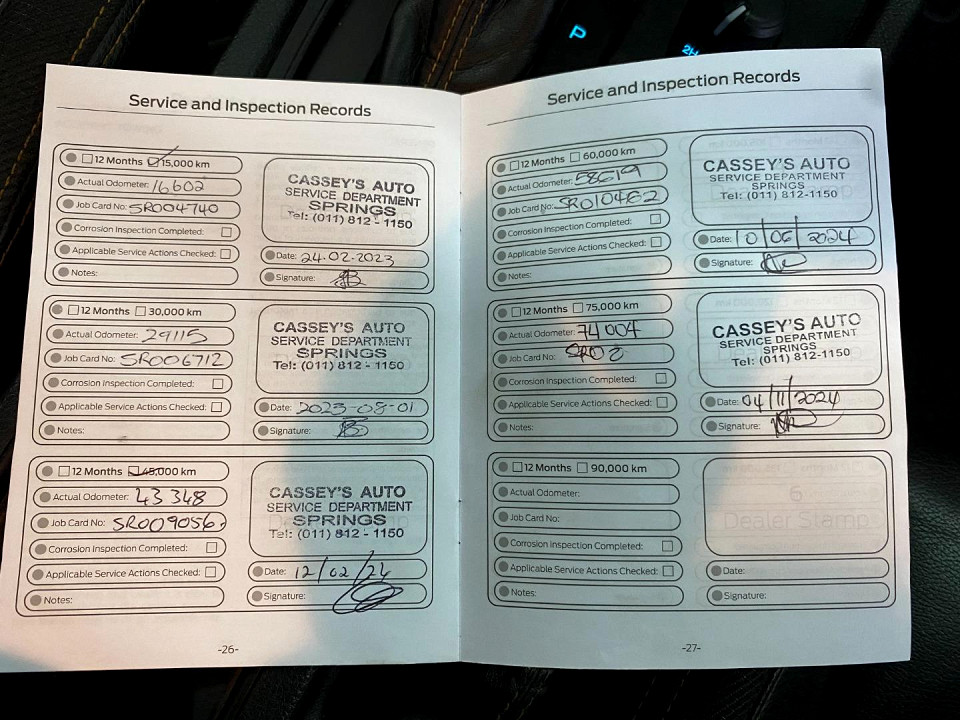 P
2H
Service and Inspection Records
12 Months 15,000 km
Actual Odometer: 16602
Job Card No: SR004740
Corrosion Inspection Completed:
Applicable Service Actions Checked:
Notes:
CASSEY'S AUTO
SERVICE DEPARTMENT
SPRINGS
Tel: (011) 812 - 1150
Date: 24-02-2023
Signature:
12 Months 30,000 km
Actual Odometer: 29115
Job Card No: SR006712
Corrosion Inspection Completed:
Applicable Service Actions Checked:
Notes:
CASSEY'S AUTO
SERVICE DEPARTMENT
SPRINGS
Tel: (011) 812 - 1150
Date: 2023-08-01
Signature:
12 Months 45,000 km
Actual Odometer: 43 348
Job Card No: SR009056
Corrosion Inspection Completed:
Applicable Service Actions Checked:
Notes:
CASSEY'S AUTO
SERVICE DEPARTMENT
SPRINGS
Tel: (011) 812 - 1150
Date: 12/02/24
Signature:
-26-
Service and Inspection Records
12 Months 60,000 km
Actual Odometer: 58619
Job Card No: SR010462
Corrosion Inspection Completed:
Applicable Service Actions Checked:
Notes:
CASSEY'S AUTO
SERVICE DEPARTMENT
SPRINGS
Tel: (011) 812-1150
Date: 10/06/2024
Signature:
12 Months 75,000 km
Actual Odometer: 74 004
Job Card No:
Corrosion Inspection Completed:
Applicable Service Actions Checked:
Notes:
CASSEY'S AUTO
SERVICE DEPARTMENT
SPRINGS
Tel: (011) 812-1150
Date: 04/11/2024
Signature:
12 Months 90,000 km
Actual Odometer:
Job Card No:
Corrosion Inspection Completed:
Applicable Service Actions Checked:
Notes:
6
Dealer Stamp
Date:
Signature:
-27-